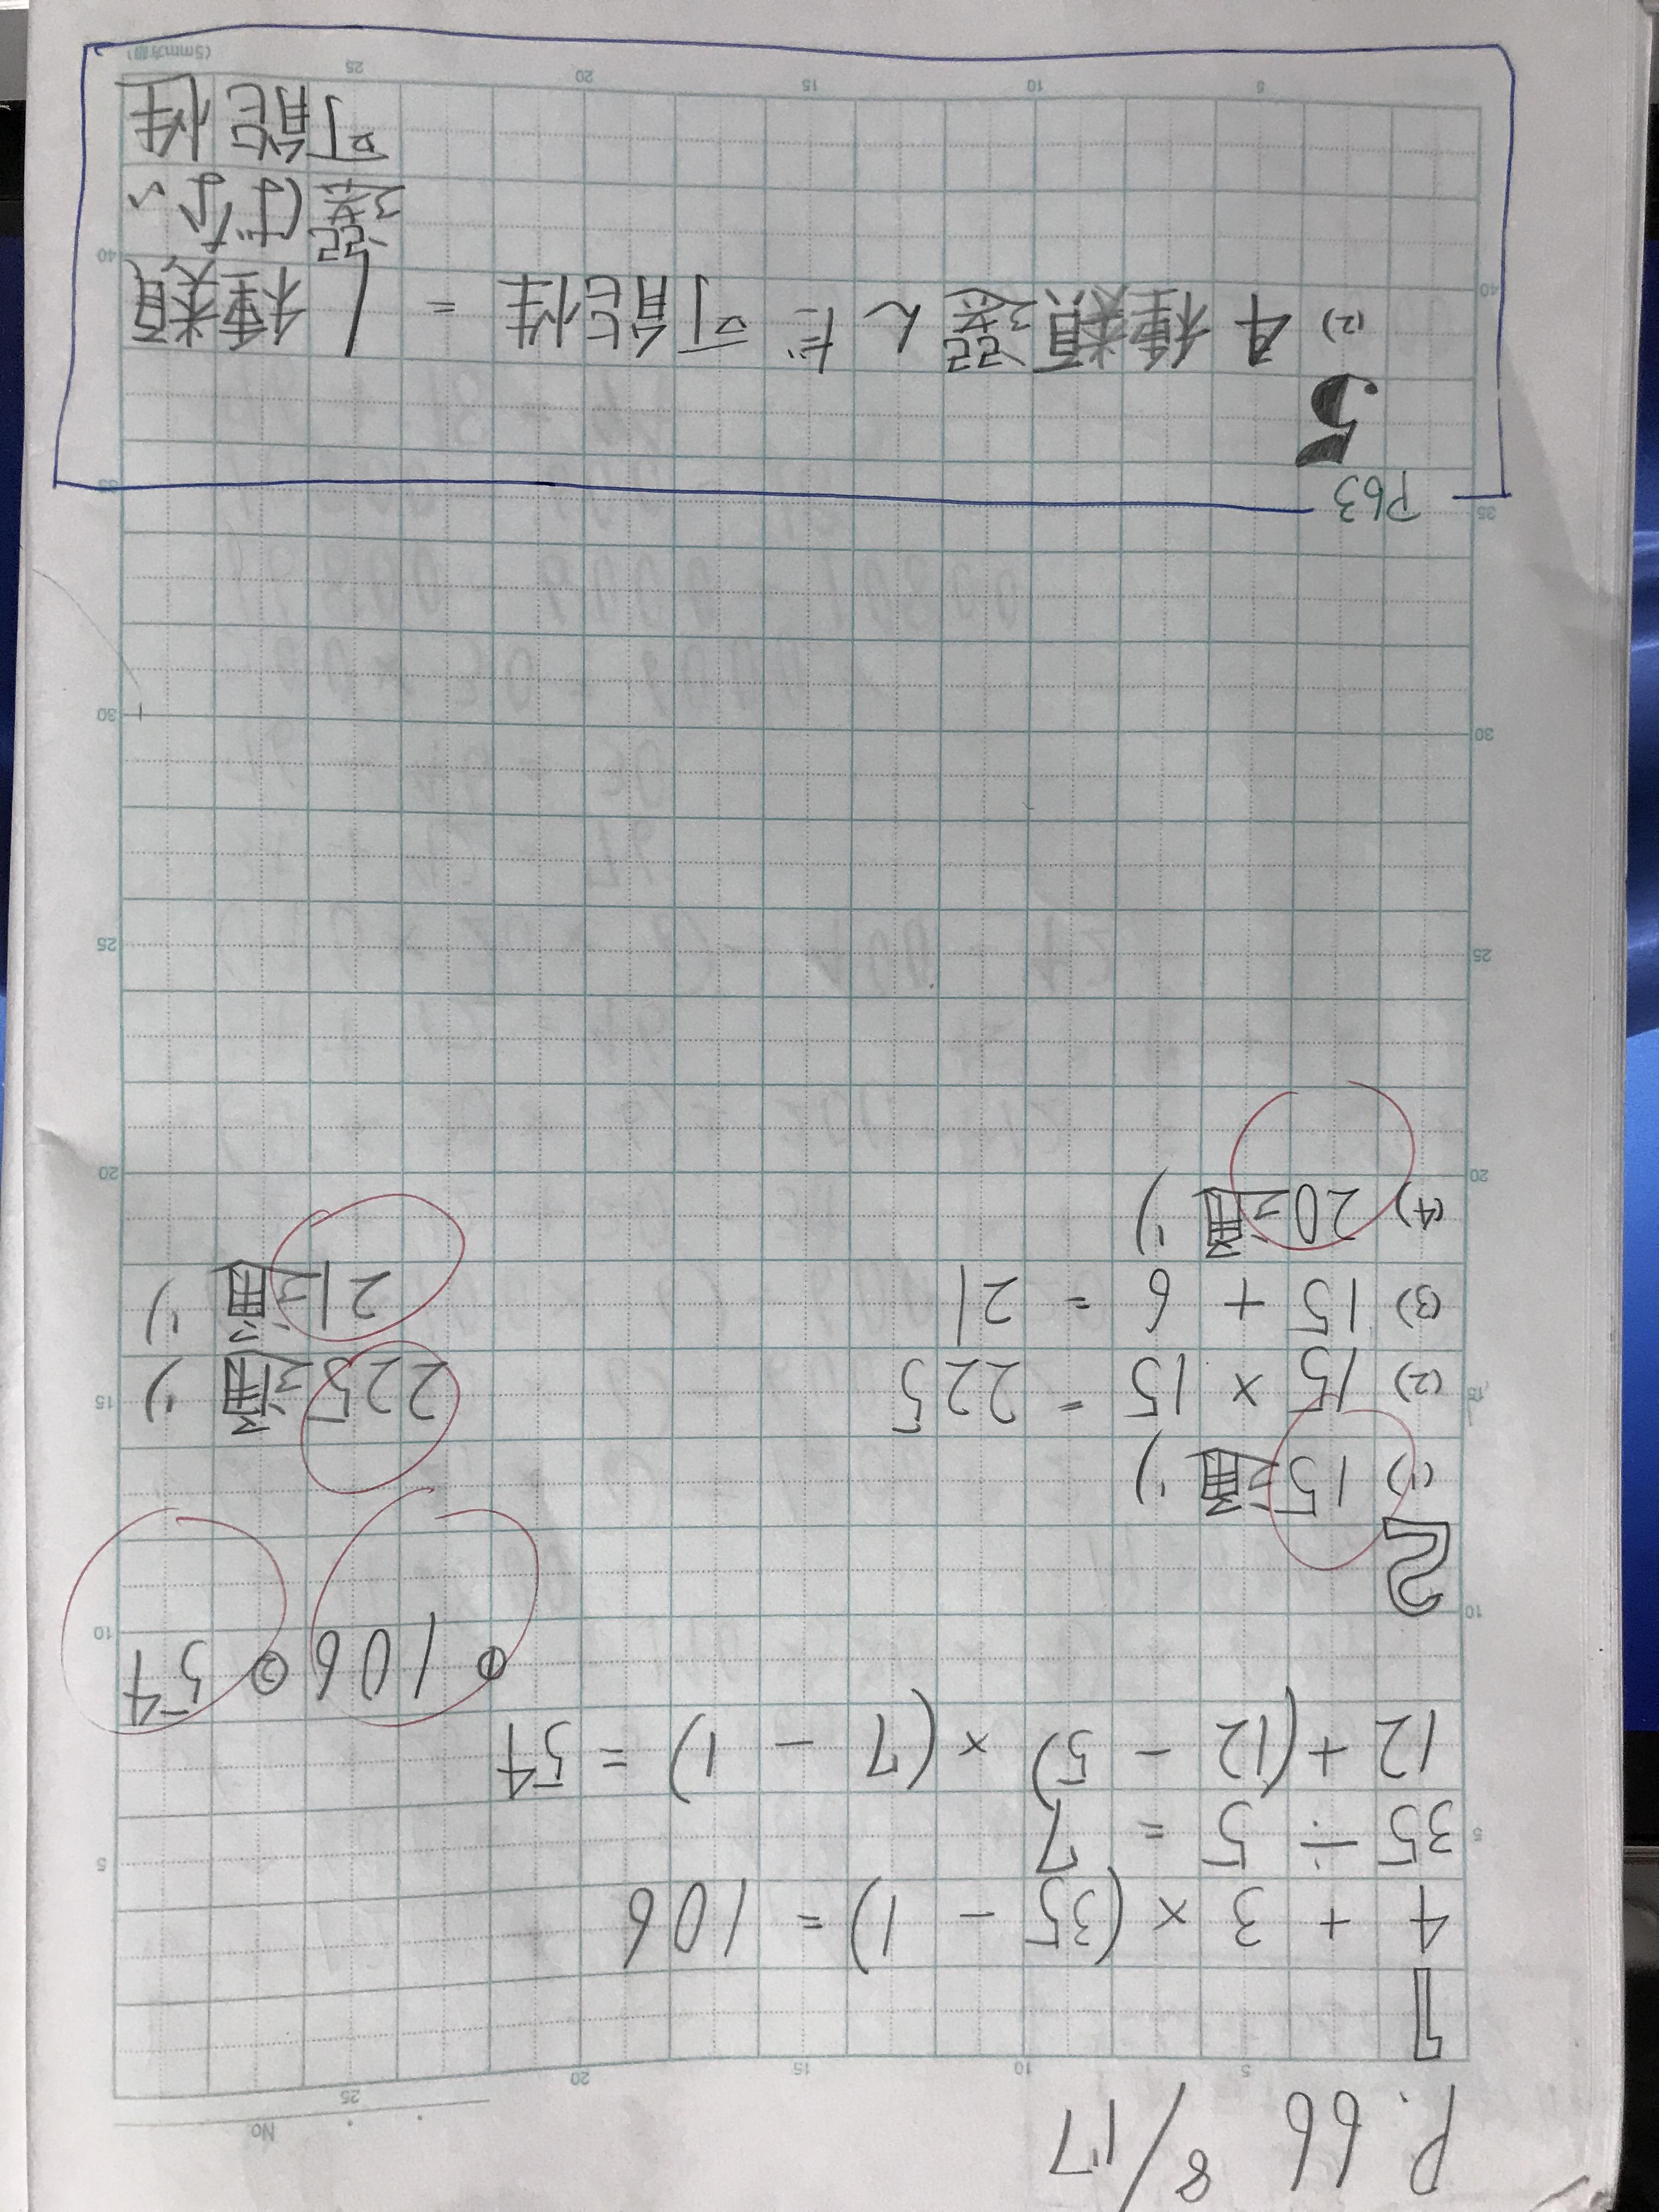 P. 66 8/17
No.
1
4 + 3 × (35 - 1) = 106
35 ÷ 5 = 7
12 + (12 - 5) × (7 - 1) = 54
① 106 ② 54
2
(1) 15通り
(2) 15 × 15 = 225 225通り
(3) 15 + 6 = 21 21通り
(4) 20通り
P63
5
(2) 4種類選んだ可能性 = 1種類
選ばない
可能性
(5mm方眼)